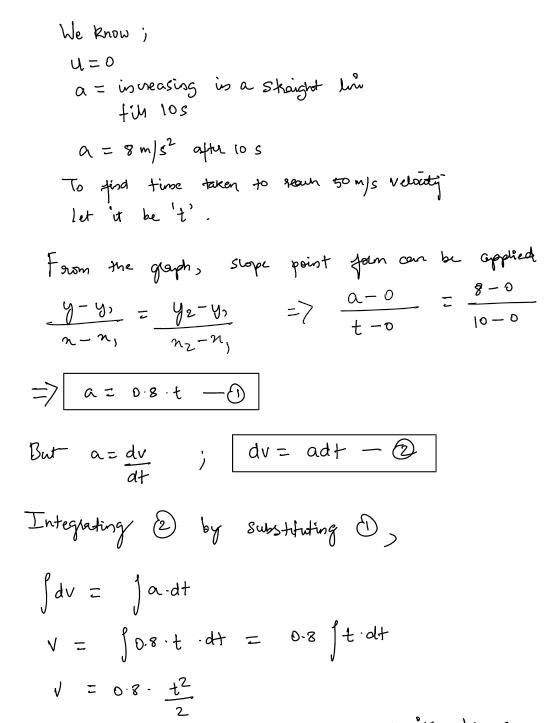 We know ;
u = 0
a = increasing in a straight line
till 10s
a = 8 m/s² after 10 s
To find time taken to reach 50 m/s velocity
let it be 't'.
From the graph, slope point form can be applied
(y - y₁)/(x - x₁) = (y₂ - y₁)/(x₂ - x₁) => (a - 0)/(t - 0) = (8 - 0)/(10 - 0)
=> a = 0.8 . t — ①
But a = dv/dt ; dv = adt — ②
Integrating ② by substituting ①,
∫dv = ∫a.dt
v = ∫0.8 . t . dt = 0.8 ∫t.dt
v = 0.8 . t²/2